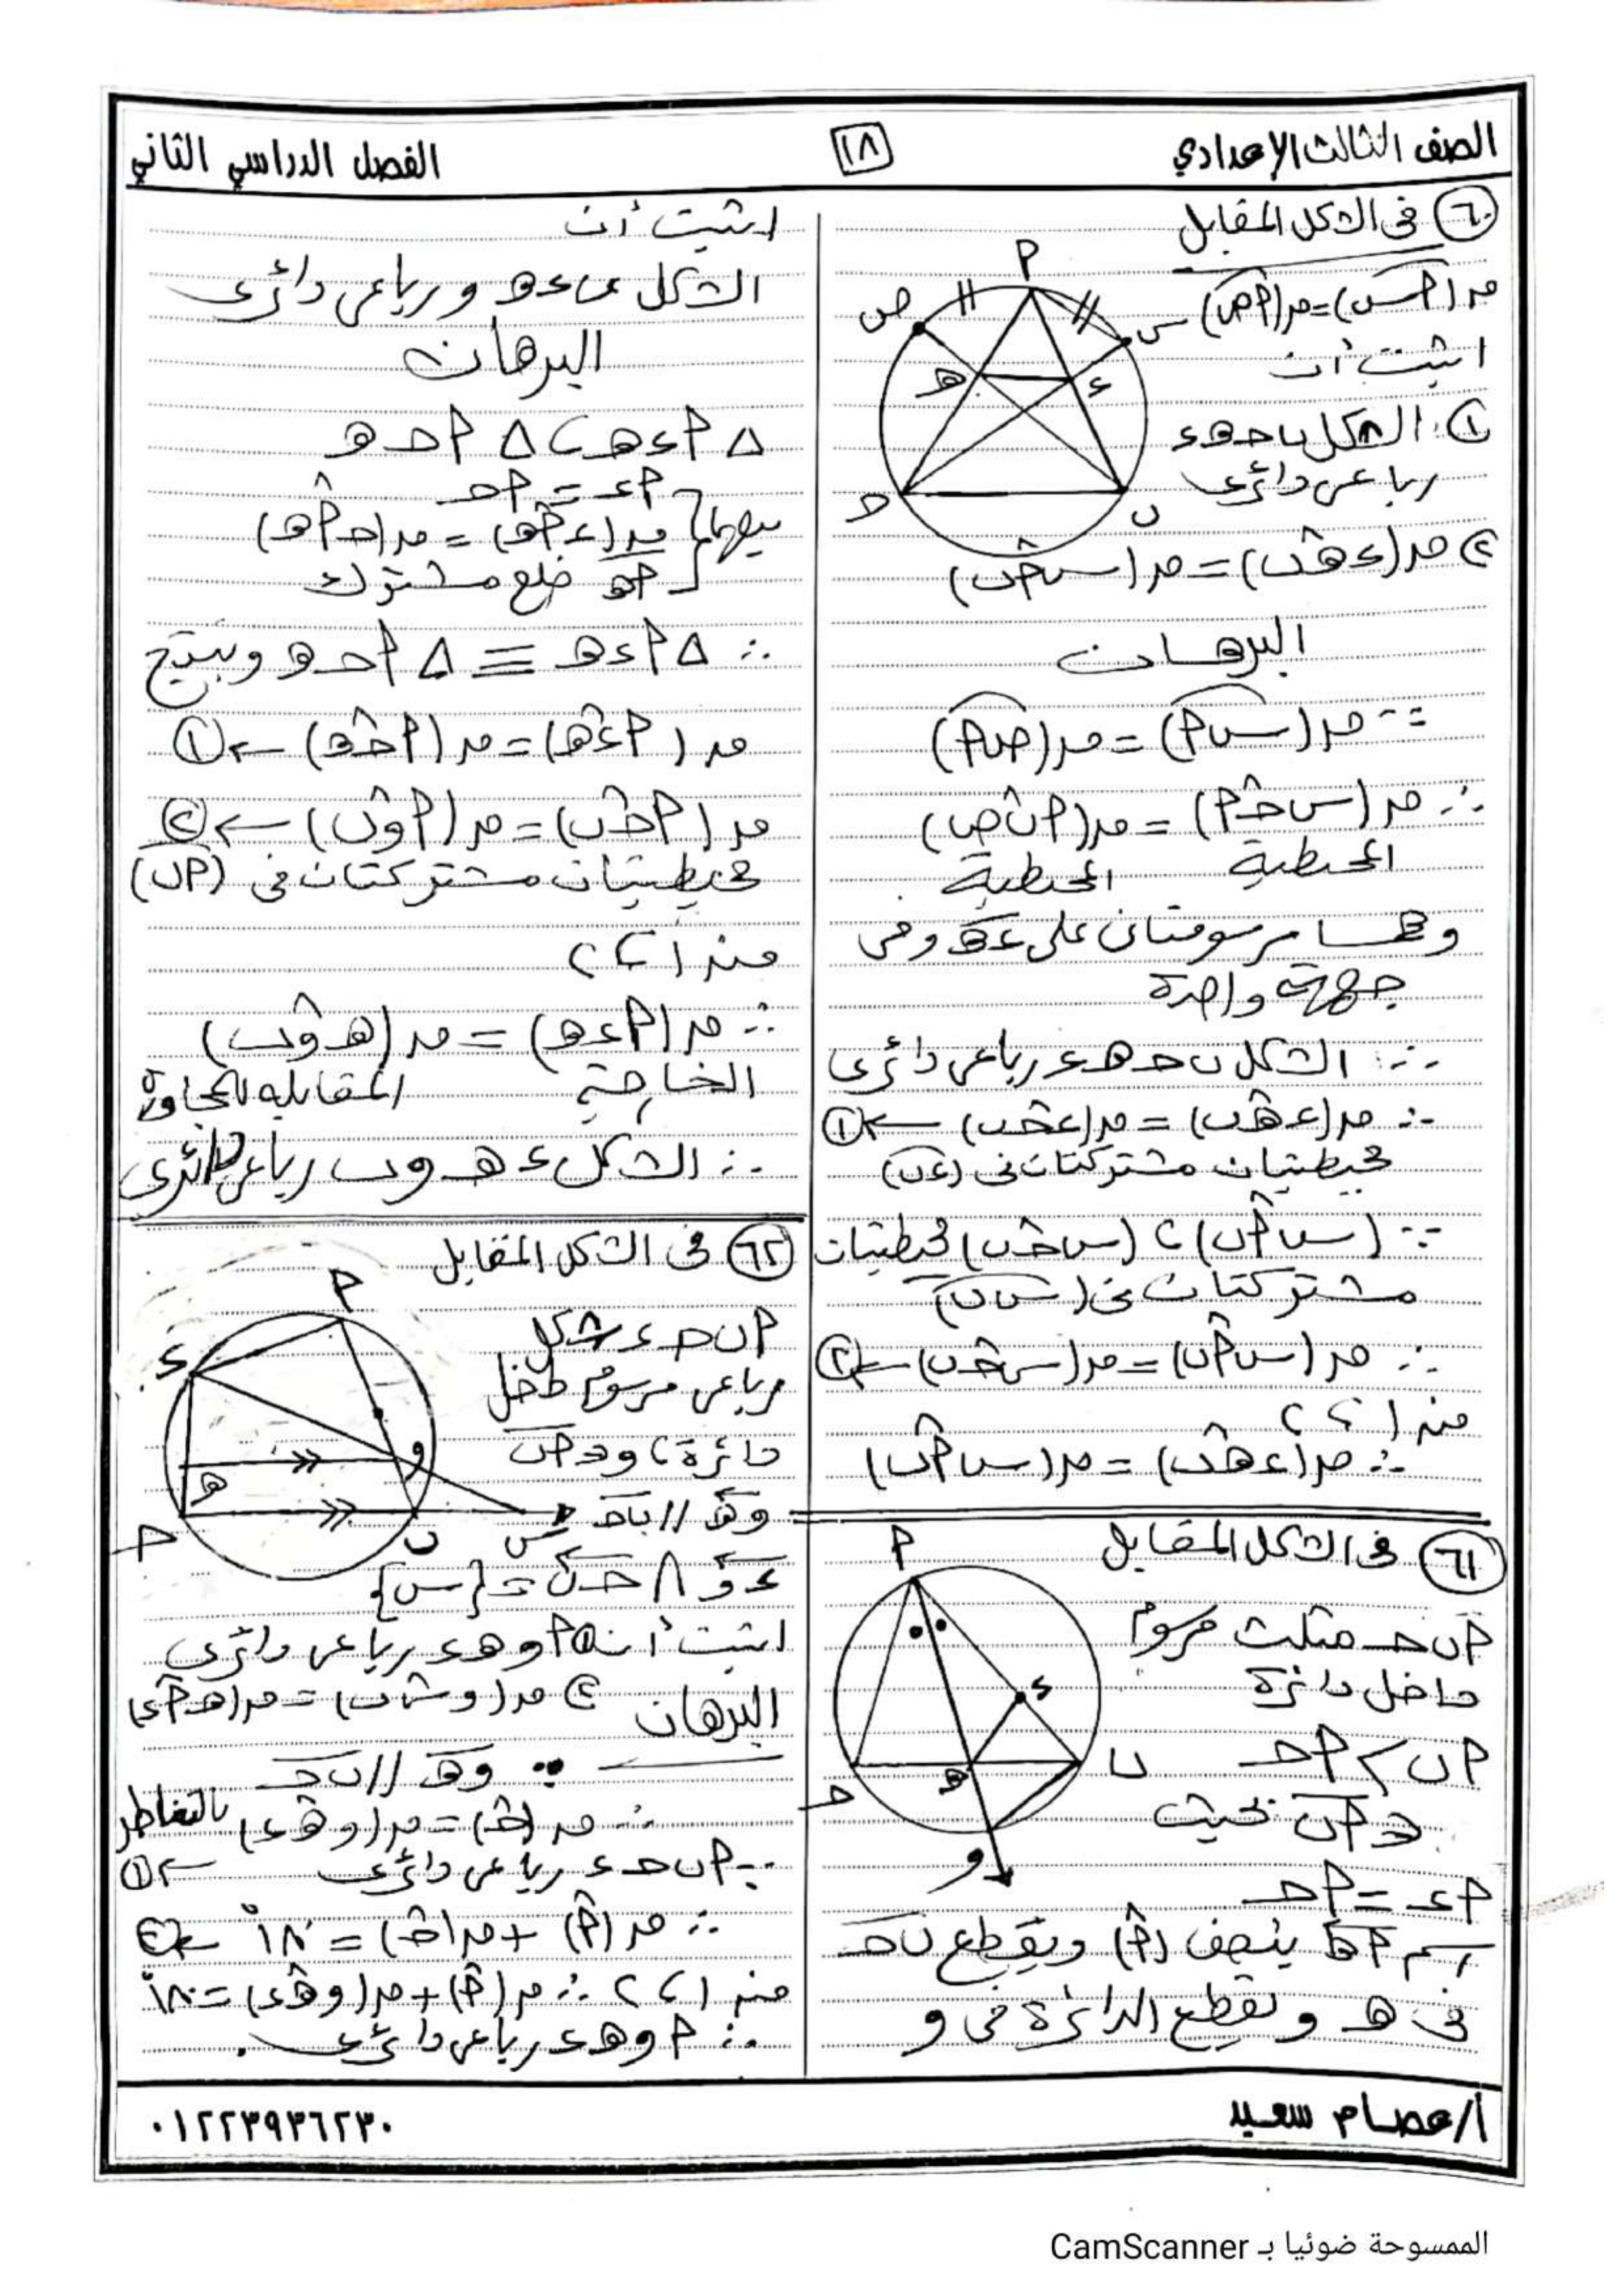 الصف الثالث الإعدادي
١٨
الفصل الدراسي الثاني
٦٠ في الشكل المقابل
ق(أس) = ق(أص)
اثبت أن
١) الشكل ب حـ هـ ء
رباعى دائرى
٢) ق(ء هـ ب) = ق(س أ ب)
أ
ص
س
هـ
ء
حـ
ب
البرهان
∵ ق(س أ) = ق(ص أ)
∴ ق(س حـ أ) = ق(أ ب ص)
المحيطية المحيطية
وهما مرسومتان على ء هـ وفى
جهة واحدة
∴ الشكل ب حـ هـ ء رباعى دائرى
∴ ق(ء هـ ب) = ق(ء حـ ب) ← ١
محيطيتان مشتركتان فى (ء ب)
∵ (س أ ب) ، (س حـ ب) محيطيتان
مشتركتان فى (س ب)
∴ ق(س أ ب) = ق(س حـ ب) ← ٢
من ١ ، ٢
∴ ق(ء هـ ب) = ق(س أ ب)
٦١ فى الشكل المقابل
أ ب حـ مثلث مرسوم
داخل دائرة
أ ب > أ حـ
ء ∈ أ ب بحيث
أ ء = أ حـ
رسم أ هـ ينصف (أ) ويقطع ب حـ
فى هـ ويقطع الدائرة فى و
أ
ء
ب
هـ
حـ
و
اثبت أن
الشكل ب ء هـ و رباعى دائرى
البرهان
∆ أ ء هـ ، ∆ أ حـ هـ
فيهما أ ء = أ حـ
ق(ء أ هـ) = ق(حـ أ هـ)
أ هـ ضلع مشترك
∴ ∆ أ ء هـ ≡ ∆ أ حـ هـ وينتج
ق(أ ء هـ) = ق(أ حـ هـ) ← ١
ق(أ حـ ب) = ق(أ و ب) ← ٢
محيطيتان مشتركتان فى (أ ب)
من ١ ، ٢
∴ ق(أ ء هـ) = ق(هـ و ب)
الخارجة المقابلة للمجاورة
∴ الشكل ء هـ و ب رباعى دائرى
٦٢ فى الشكل المقابل
أ ب حـ ء شكل
رباعى مرسوم داخل
دائرة ، و ∈ أ ب
و هـ // ب حـ
ء و ∩ حـ ب = {س}
أ
ء
و
هـ
حـ
ب
س
اثبت أن ١) أ و هـ ء رباعى دائرى
٢) ق(و س ب) = ق(هـ أ ء)
البرهان
∵ و هـ // ب حـ
∴ ق(حـ) = ق(و هـ ء) بالتناظر
← ١
∵ أ ب حـ ء رباعى دائرى
∴ ق(أ) + ق(حـ) = ١٨٠° ← ٢
من ١ ، ٢ ∴ ق(أ) + ق(و هـ ء) = ١٨٠°
∴ أ و هـ ء رباعى دائرى.
أ/عصام سعيد
٠١٢٢٣٩٣٦٢٣٠
الممسوحة ضوئيا بـ CamScanner